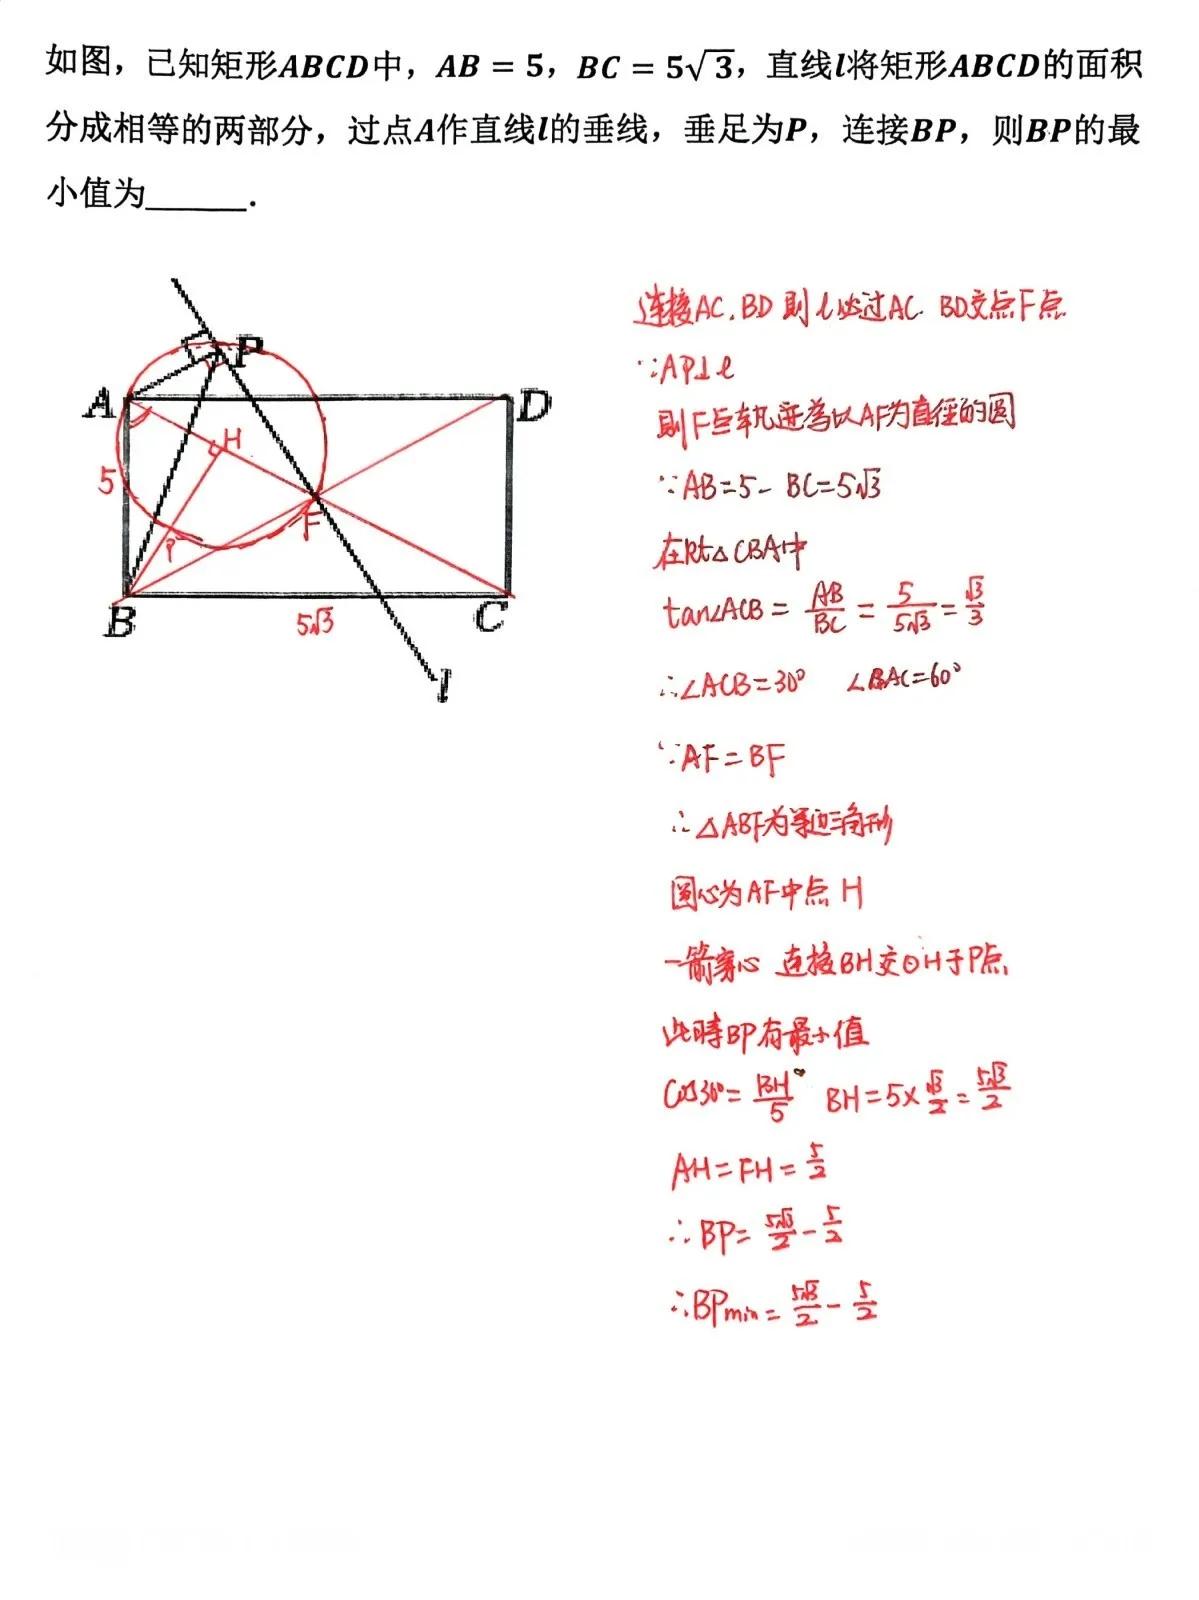 如图，已知矩形ABCD中，AB = 5，BC = 5√3，直线l将矩形ABCD的面积
分成相等的两部分，过点A作直线l的垂线，垂足为P，连接BP，则BP的最
小值为______.
A
P
D
H
5
F
P
B
5√3
C
l
连接AC.BD 则l必过AC. BD交点F点
∵AP⊥l
则F点轨迹为以AF为直径的圆
∵AB=5- BC=5√3
在Rt△CBA中
tan∠ACB = AB/BC = 5/5√3 = √3/3
∴∠ACB=30° ∠BAC=60°
∵AF=BF
∴△ABF为等边三角形
圆心为AF中点H
一箭穿心 连接BH交⊙H于P点
此时BP有最小值
Cos30°= BH/5 BH=5×√3/2=5√3/2
AH=FH=5/2
∴BP=5√3/2-5/2
∴BPmin=5√3/2-5/2